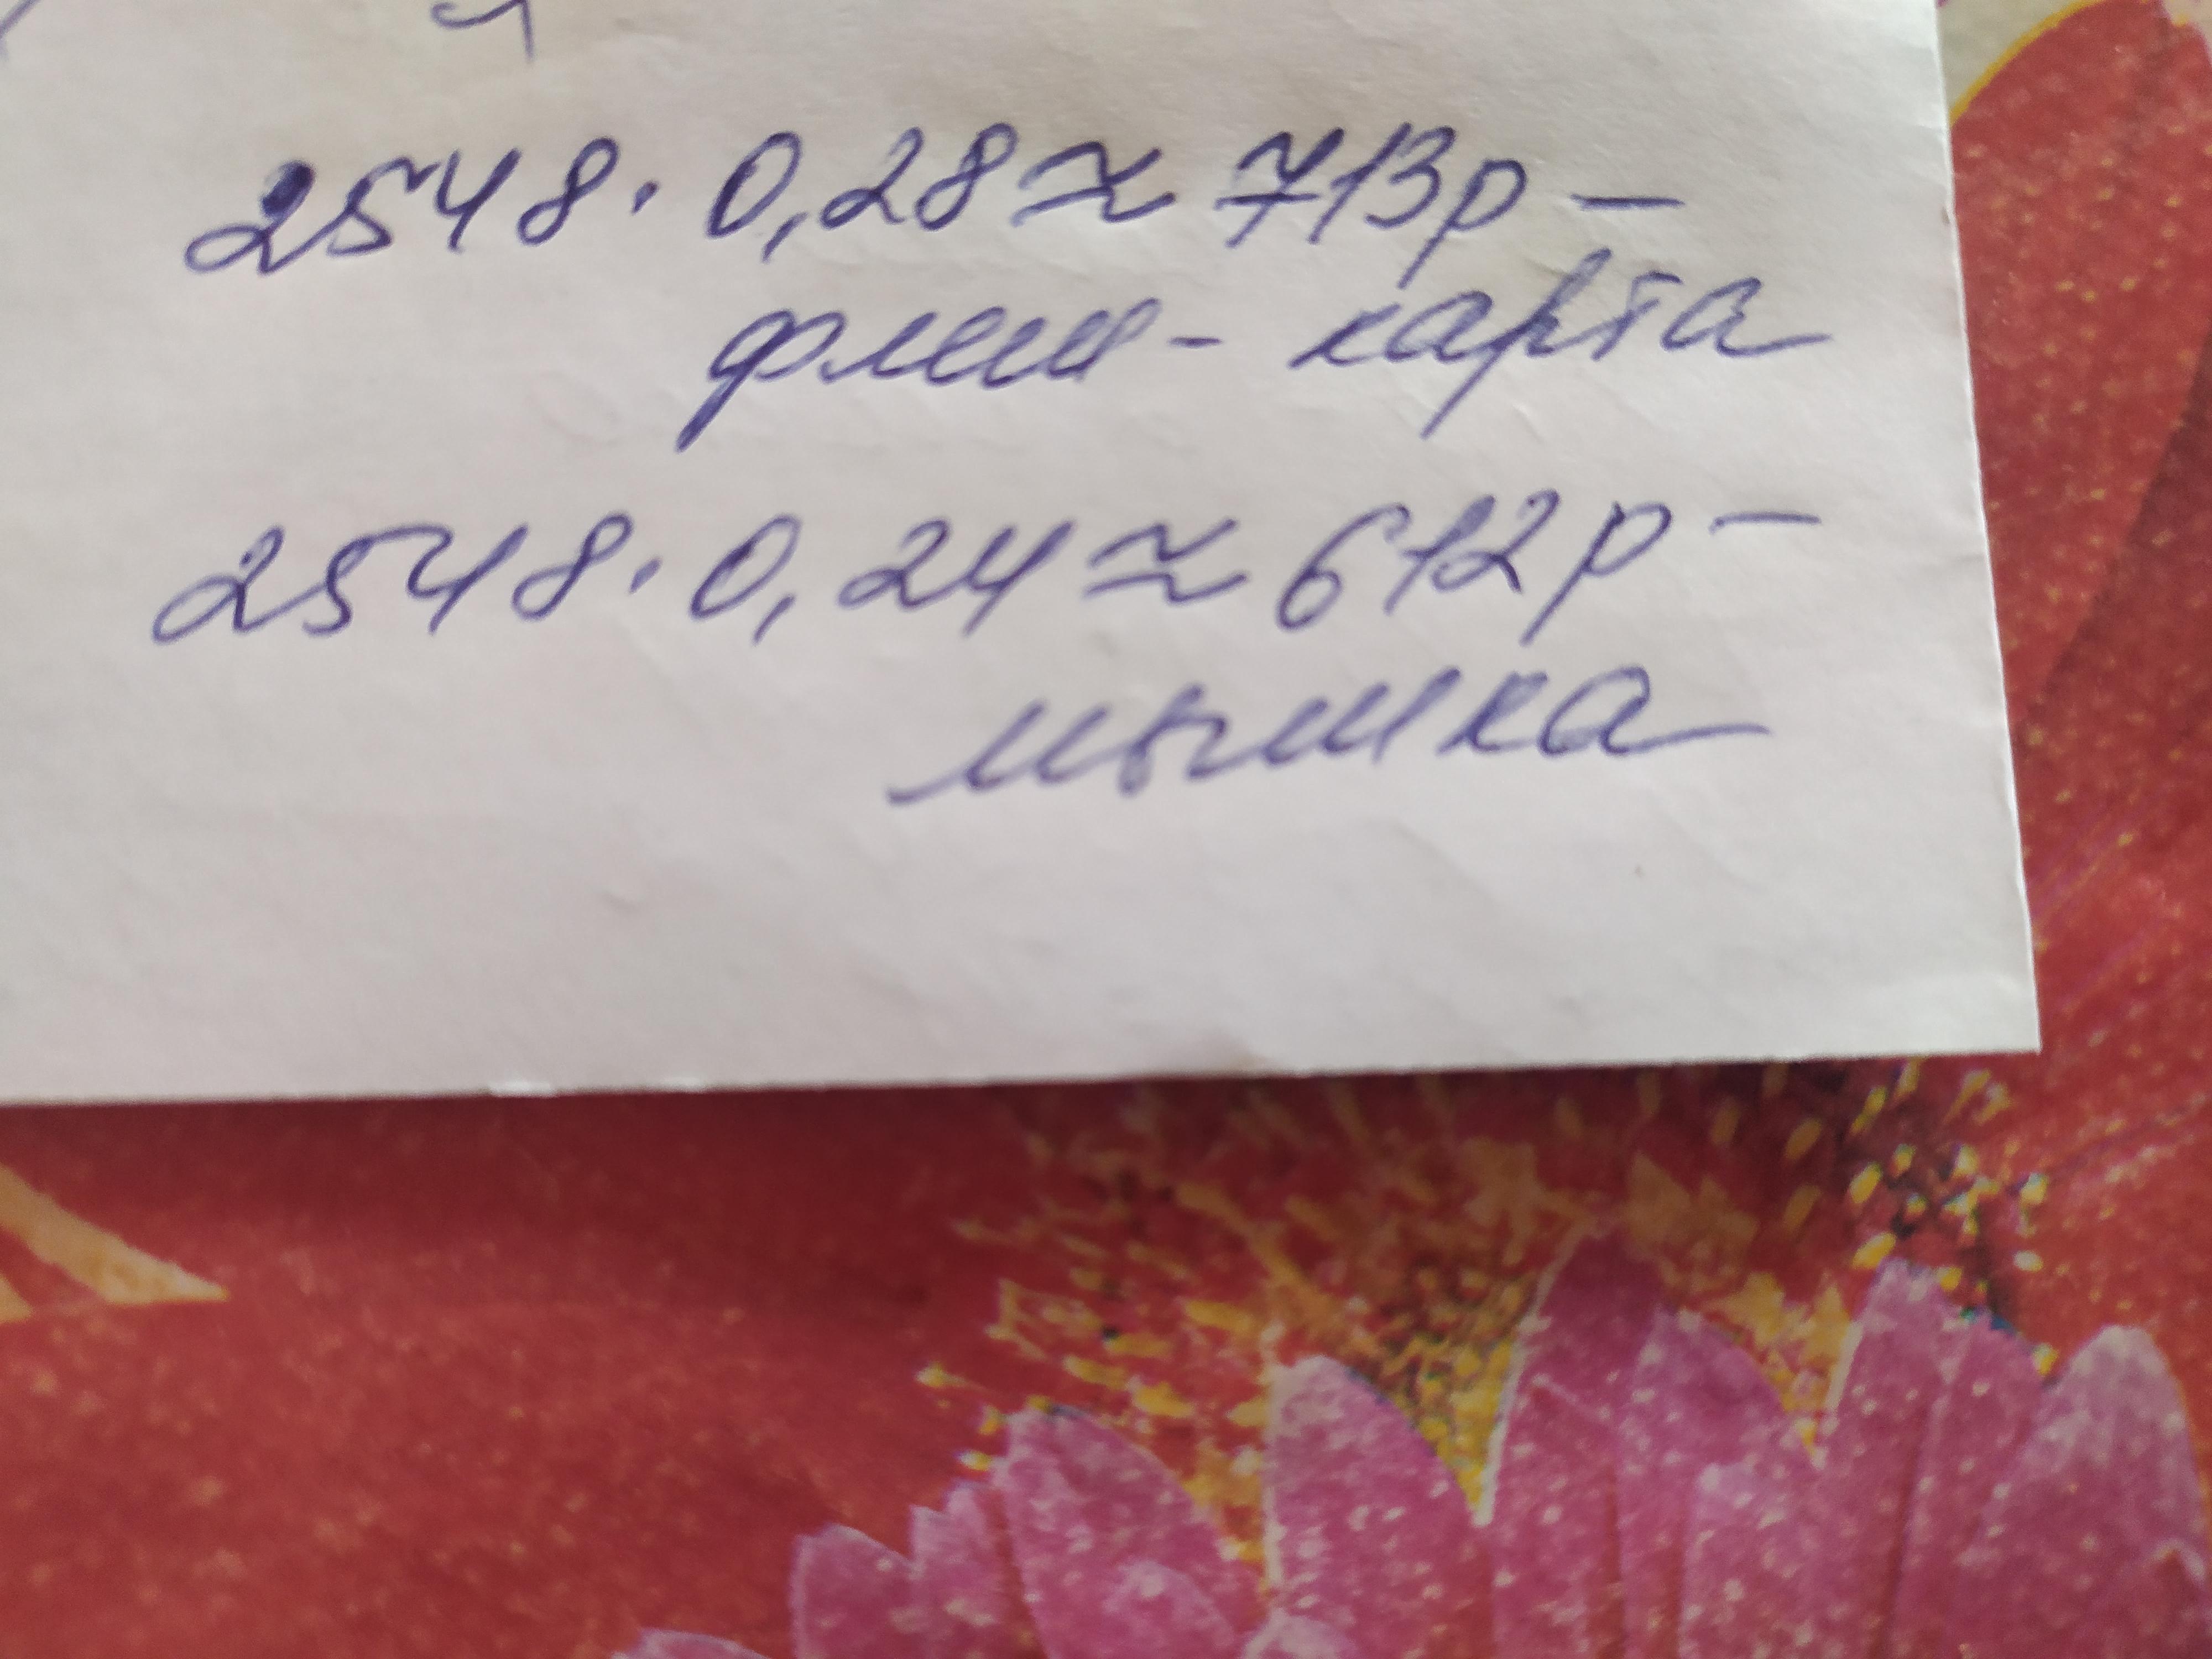 2548 · 0,28 ≈ 713р –
флеш - карта
2548 · 0,24 ≈ 612р –
мышка